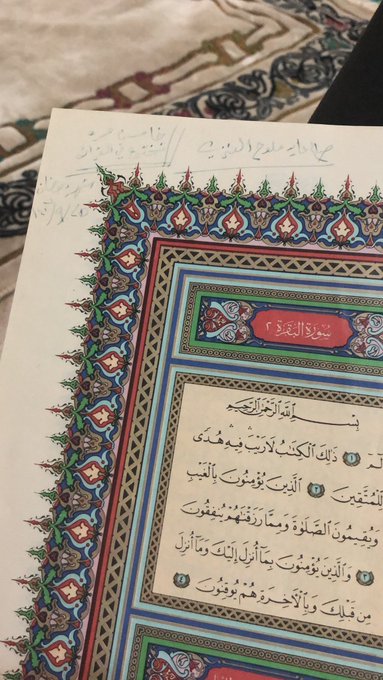 سورة البقرة ٢
بسم الله الرحمن الرحيم
الٓمٓ ١ ذَٰلِكَ ٱلْكِتَٰبُ لَا رَيْبَ ۛ فِيهِ ۛ هُدًى
لِّلْمُتَّقِينَ ٢ ٱلَّذِينَ يُؤْمِنُونَ بِٱلْغَيْبِ
وَيُقِيمُونَ ٱلصَّلَوٰةَ وَمِمَّا رَزَقْنَٰهُمْ يُنفِقُونَ
٣ وَٱلَّذِينَ يُؤْمِنُونَ بِمَآ أُنزِلَ إِلَيْكَ وَمَآ أُنزِلَ
مِن قَبْلِكَ وَبِٱلْءَاخِرَةِ هُمْ يُوقِنُونَ ٤